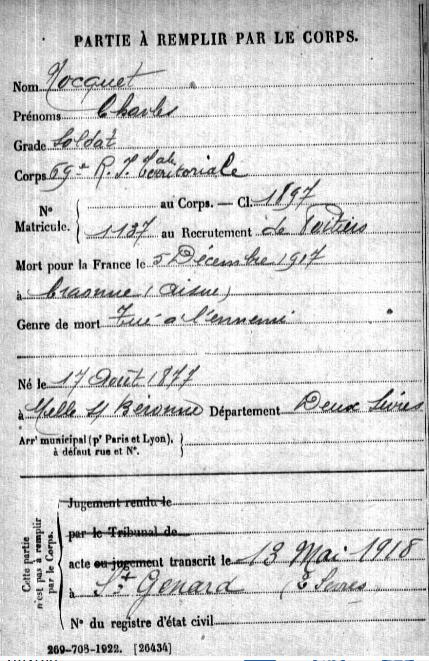 PARTIE À REMPLIR PAR LE CORPS.
Nom Nocquet
Prénoms Charles
Grade Soldat
Corps 69e R. I. Territoriale
au Corps. — Cl. 1897
N° Matricule. 1137 au Recrutement de Poitiers
Mort pour la France le 5 Décembre 1917
à Craonne (Aisne)
Genre de mort Tué à l'ennemi
Né le 17 Août 1877
à Celle s/ Département Deux Sèvres
Arr<sup>t</sup> municipal (p<sup>r</sup> Paris et Lyon),
à défaut rue et N°.
Jugement rendu le
par le Tribunal de
acte ou jugement transcrit le 13 Mai 1918
à St Génard Sèvres
N° du registre d'état civil
Cette partie n'est pas à remplir par le Corps.
269-708-1922. [26434]